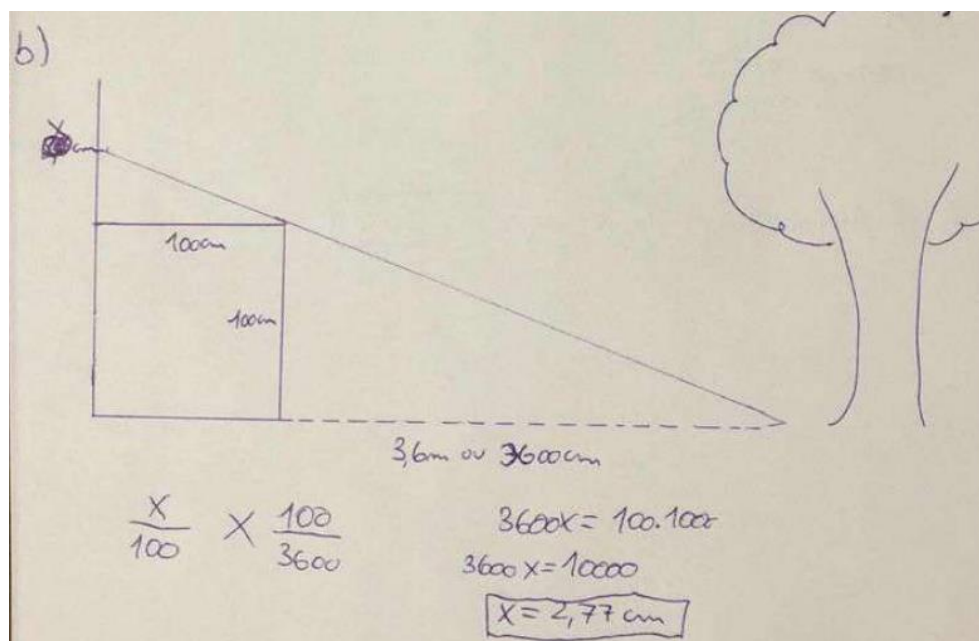 b)
X
cm
100cm
100cm
3,6m ou 3600cm
X/100 X 100/3600
3600x = 100.100
3600x = 10000
X = 2,77 cm